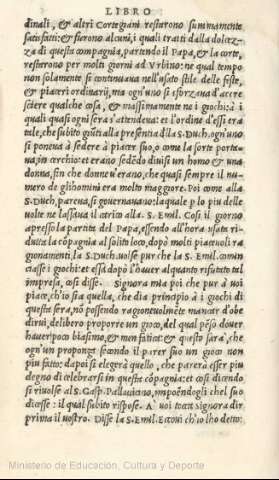 LIBRO
dinali, & altri Cortegiani restarono summamente
satisfatti: & fierono alcuni, i quali tratti dalla dolcez-
za di questa compagnia, partendo il Papa, & la corte,
restarono per molti giorni ad Vrbino: ne qual tempo
non solamente si continuava nell'usato stile delle feste,
& piaceri ordinarij, ma ogn'uno si sforzava d'accre
scere qualche cosa, & massimamente ne i giochi: à i
quali quasi ogni sera s'attendeva: et l'ordine d'essi era
tale, che subito giũti alla presentia d'lla S. Duch. ogn'uno
si poneva à sedere à piacer suo, o come la sorte porta-
va, in cerchio: et erano sedẽdo divisi un homo & una
donna, fin che donne v'erano, che quasi sempre il nu-
mero de glihomini era molto maggiore. Poi come alla
S. Duch. pareva, si governavano: la quale p lo piu delle
volte ne lassava il carico alla S. Emil. Cosi il giorno
apresso la partita del Papa, essendo all'hora usata ri-
dutta la cõpagnia al solito loco, dopò molti piacevoli ra
gionamenti, la S. Duch. volse pur che la S. Emil. comin
ciasse i giochi: et essa dopò l'haver alquanto rifiutato tal
impresa, cosi disse. Signora mia poi che pur à voi
piace, ch'io sia quella, che dia principio à i giochi di
questa sera, nõ possendo ragionevolmẽte mancar d'obe
dirvi, delibero proporre un gioco, del qual pẽso dover
haver poco biasmo, & men fatica: & questo sarà, che
ogn'un proponga secondo il parer suo un gioco non
piu fatto; dapoi si elegerà quello, che parerà esser piu
degno di celebrarsi in questa cõpagnia: et cosi dicendo
si rivolse al S. Gasp. Pallavicino, impoẽdogli chel suo
dicesse: il qual subito rispose. A voi tocca signora dir
prima il vostro. Disse la S. Emil. Eccovi ch'io l'ho detto:
Ministerio de Educación, Cultura y Deporte